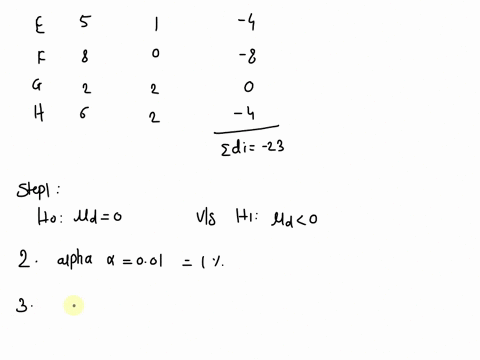 E 5 1 -4
F 8 0 -8
G 2 2 0
H 6 2 -4
Σdi = -23
Step1:
H0: μd = 0 v/s H1: μd < 0
2. alpha α = 0.01 = 1%.
3.